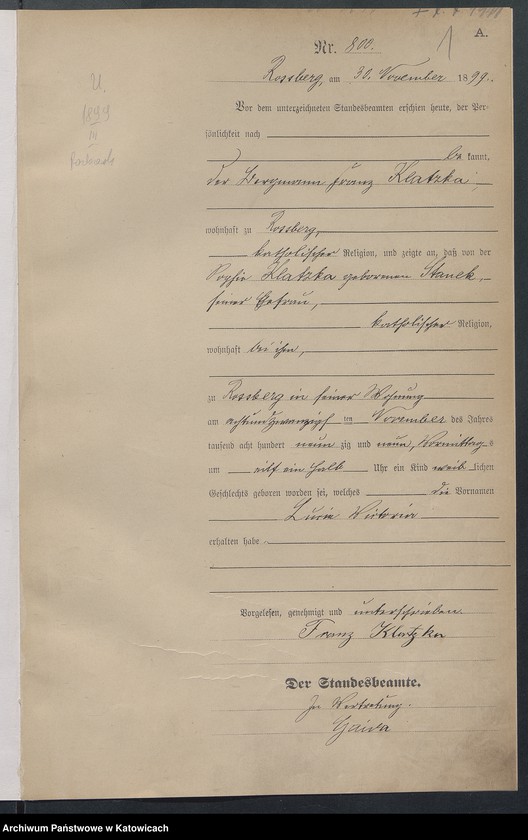 A.
1
Nr. 800.
Rossberg, am 30. November 1899.
U.
1899
Vor dem unterzeichneten Standesbeamten erschien heute, der Per-
sönlichkeit nach
be kannt,
der Bergmann Franz Klatzka,
wohnhaft zu Rossberg,
katholischer Religion, und zeigte an, daß von der
Sophie Klatzka geborenen Stanek,
seiner Ehefrau,
katholischer Religion,
wohnhaft bei ihm,
zu Rossberg in seiner Wohnung
am achtundzwanzigsten November des Jahres
tausend acht hundert neun zig und neun, Vormittags
um eilf ein halb Uhr ein Kind weib lichen
Geschlechts geboren worden sei, welches die Vornamen
Lucie Victoria
erhalten habe
Vorgelesen, genehmigt und unterschrieben.
Franz Klatzka
Der Standesbeamte.
In Vertretung.
Archiwum Państwowe w Katowicach